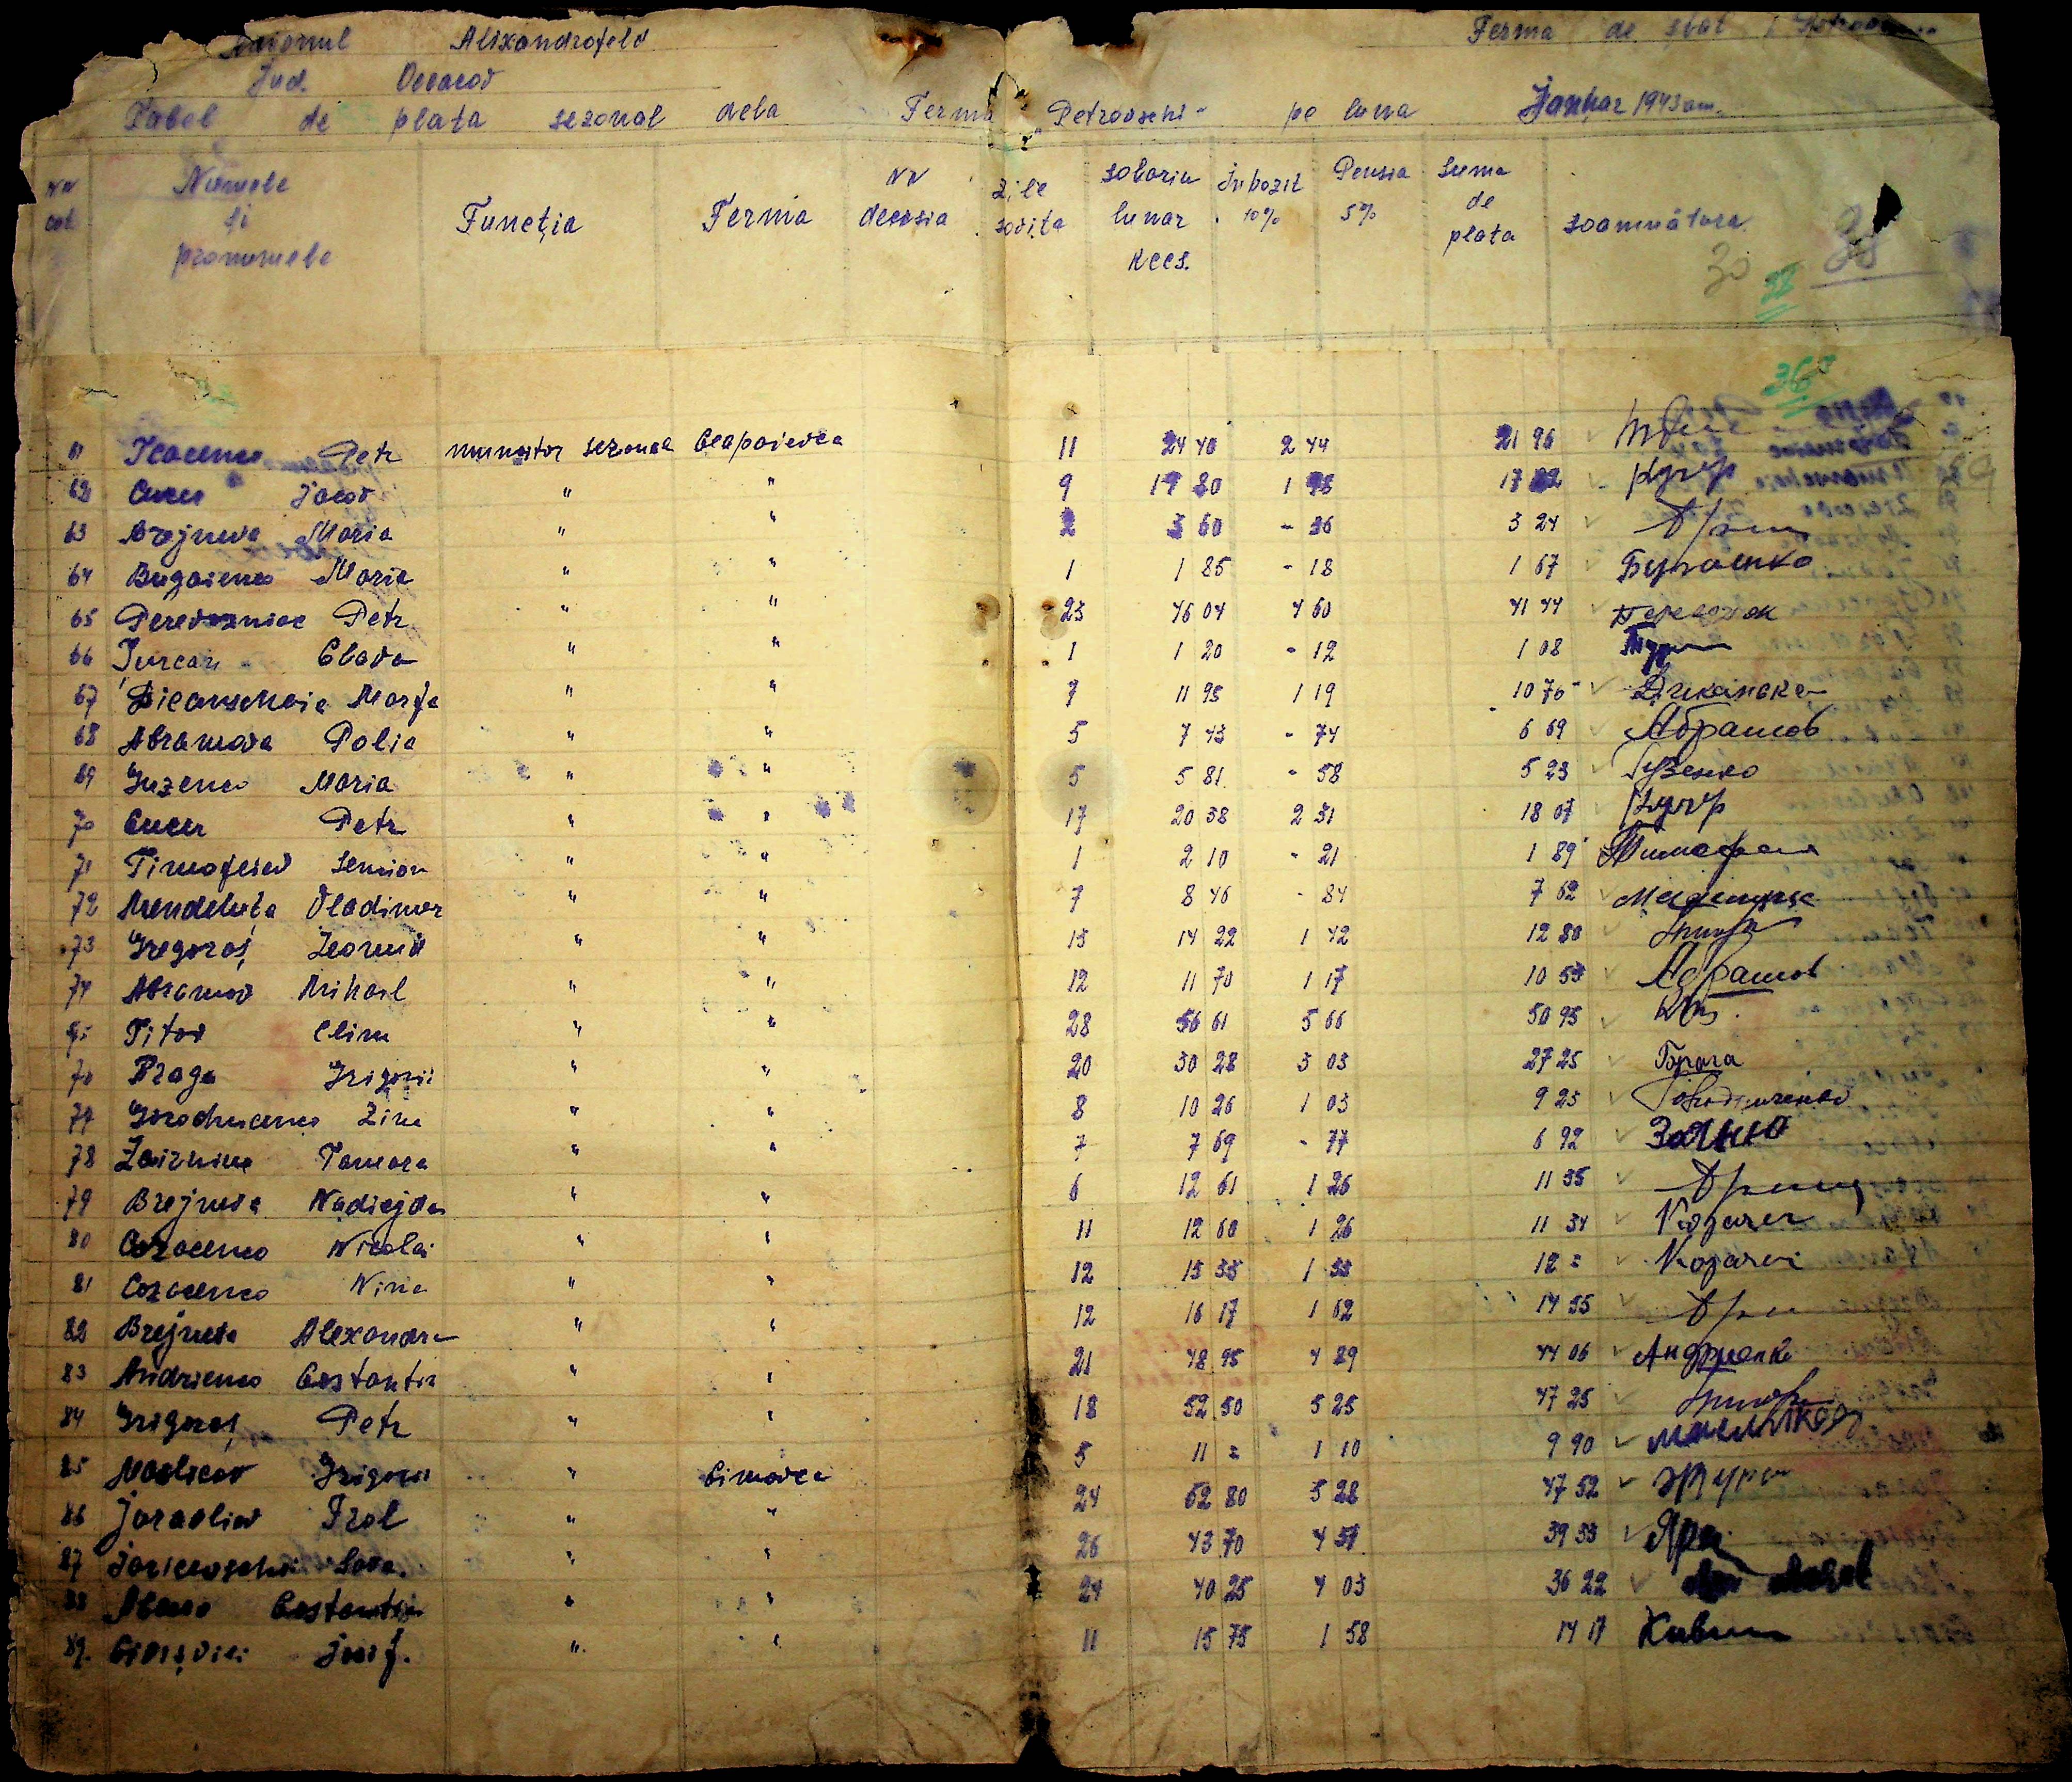 Raionul Alixandrofeld Ferma de stat
Jud. Oceacov
Tabel de plata sezonal dela Ferma "Petrovschi" pe luna Januar 1943 am.
NN crt Numele și pronumele Funcția Ferma NN decosia zile sovița solariu lunar RCCS. Inpozit 10% Pensia 5% Suma de plata soamnătura 30 38
36
61 Tcacenco Petr muncitor sezonal Ceapaievca 11 24 40 2 44 21 96
62 Cucer Jacov " " 9 19 80 1 98 17 82 Кучер
63 Brejneva Maria " " 2 3 60 - 36 3 24
64 Bugaienco Maria " " 1 1 85 - 18 1 67 Бугаенко
65 Perevozniac Petr " " 23 46 04 4 60 41 44
66 Țurcan Clava " " 1 1 20 - 12 1 08
67 Dicanschaia Marfa " " 7 11 95 1 19 10 76 Диканска
68 Abramova Polia " " 5 7 43 - 74 6 69 Абрамов
69 Guzenco Maria " " 5 5 81 - 58 5 23 Гузенко
70 Cucer Petr " " 17 20 38 2 31 18 07 Кучер
71 Timofeiev Semion " " 1 2 10 - 21 1 89
72 Mendeluța Vladimir " " 7 8 46 - 84 7 62
73 Gregoraș Leonid " " 13 14 22 1 42 12 80
74 Abramov Mihail " " 12 11 70 1 17 10 53 Абрамов
75 Titov Clim " " 28 56 61 5 66 50 95
76 Braga Grigorii " " 20 30 28 3 03 27 25 Брага
77 Gorodnicenco Zina " " 8 10 26 1 03 9 23
78 Zaiznina Tamara " " 7 7 69 - 77 6 92
79 Brejneva Nadiejda " " 6 12 61 1 26 11 35
80 Cozacenco Nicolai " " 11 12 60 1 26 11 34
81 Cozacenco Nina " " 12 13 33 1 33 12 =
82 Brejneva Alexandra " " 12 16 17 1 62 14 55
83 Andrienco Costantin " " 21 48 95 4 89 44 06 Андриенко
84 Grigoraș Petr " " 18 52 50 5 25 47 25
85 Maslicov Grigorii " Cimovca 5 11 = 1 10 9 90
86 Joravliov Frol " " 24 52 80 5 28 47 52
87 Sava. " " 26 43 70 4 37 39 33
88 Costantin " " 24 40 25 4 03 36 22
89. Josif. " " 11 15 75 1 58 14 17